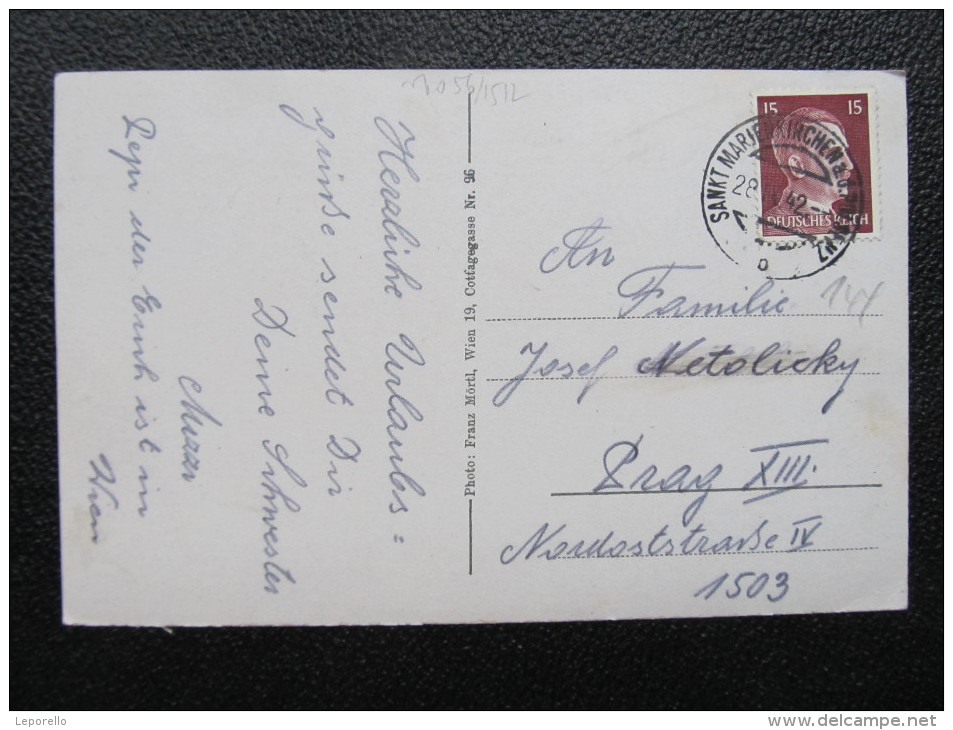 Herzliche Urlaubs=
grüße sendet Dir
Deine Schwester
Mizzi
Pepi der Erich ist in
Wien
Photo: Franz Mörtl, Wien 19, Cottagegasse Nr. 96
15 15
DEUTSCHES REICH
SANKT MARIENKIRCHEN a.d.
28 42
b
An
Familie
Josef Netolicky
Prag XIII.
Nordoststraße IV
1503
144
Leporello
www.delcampe.net